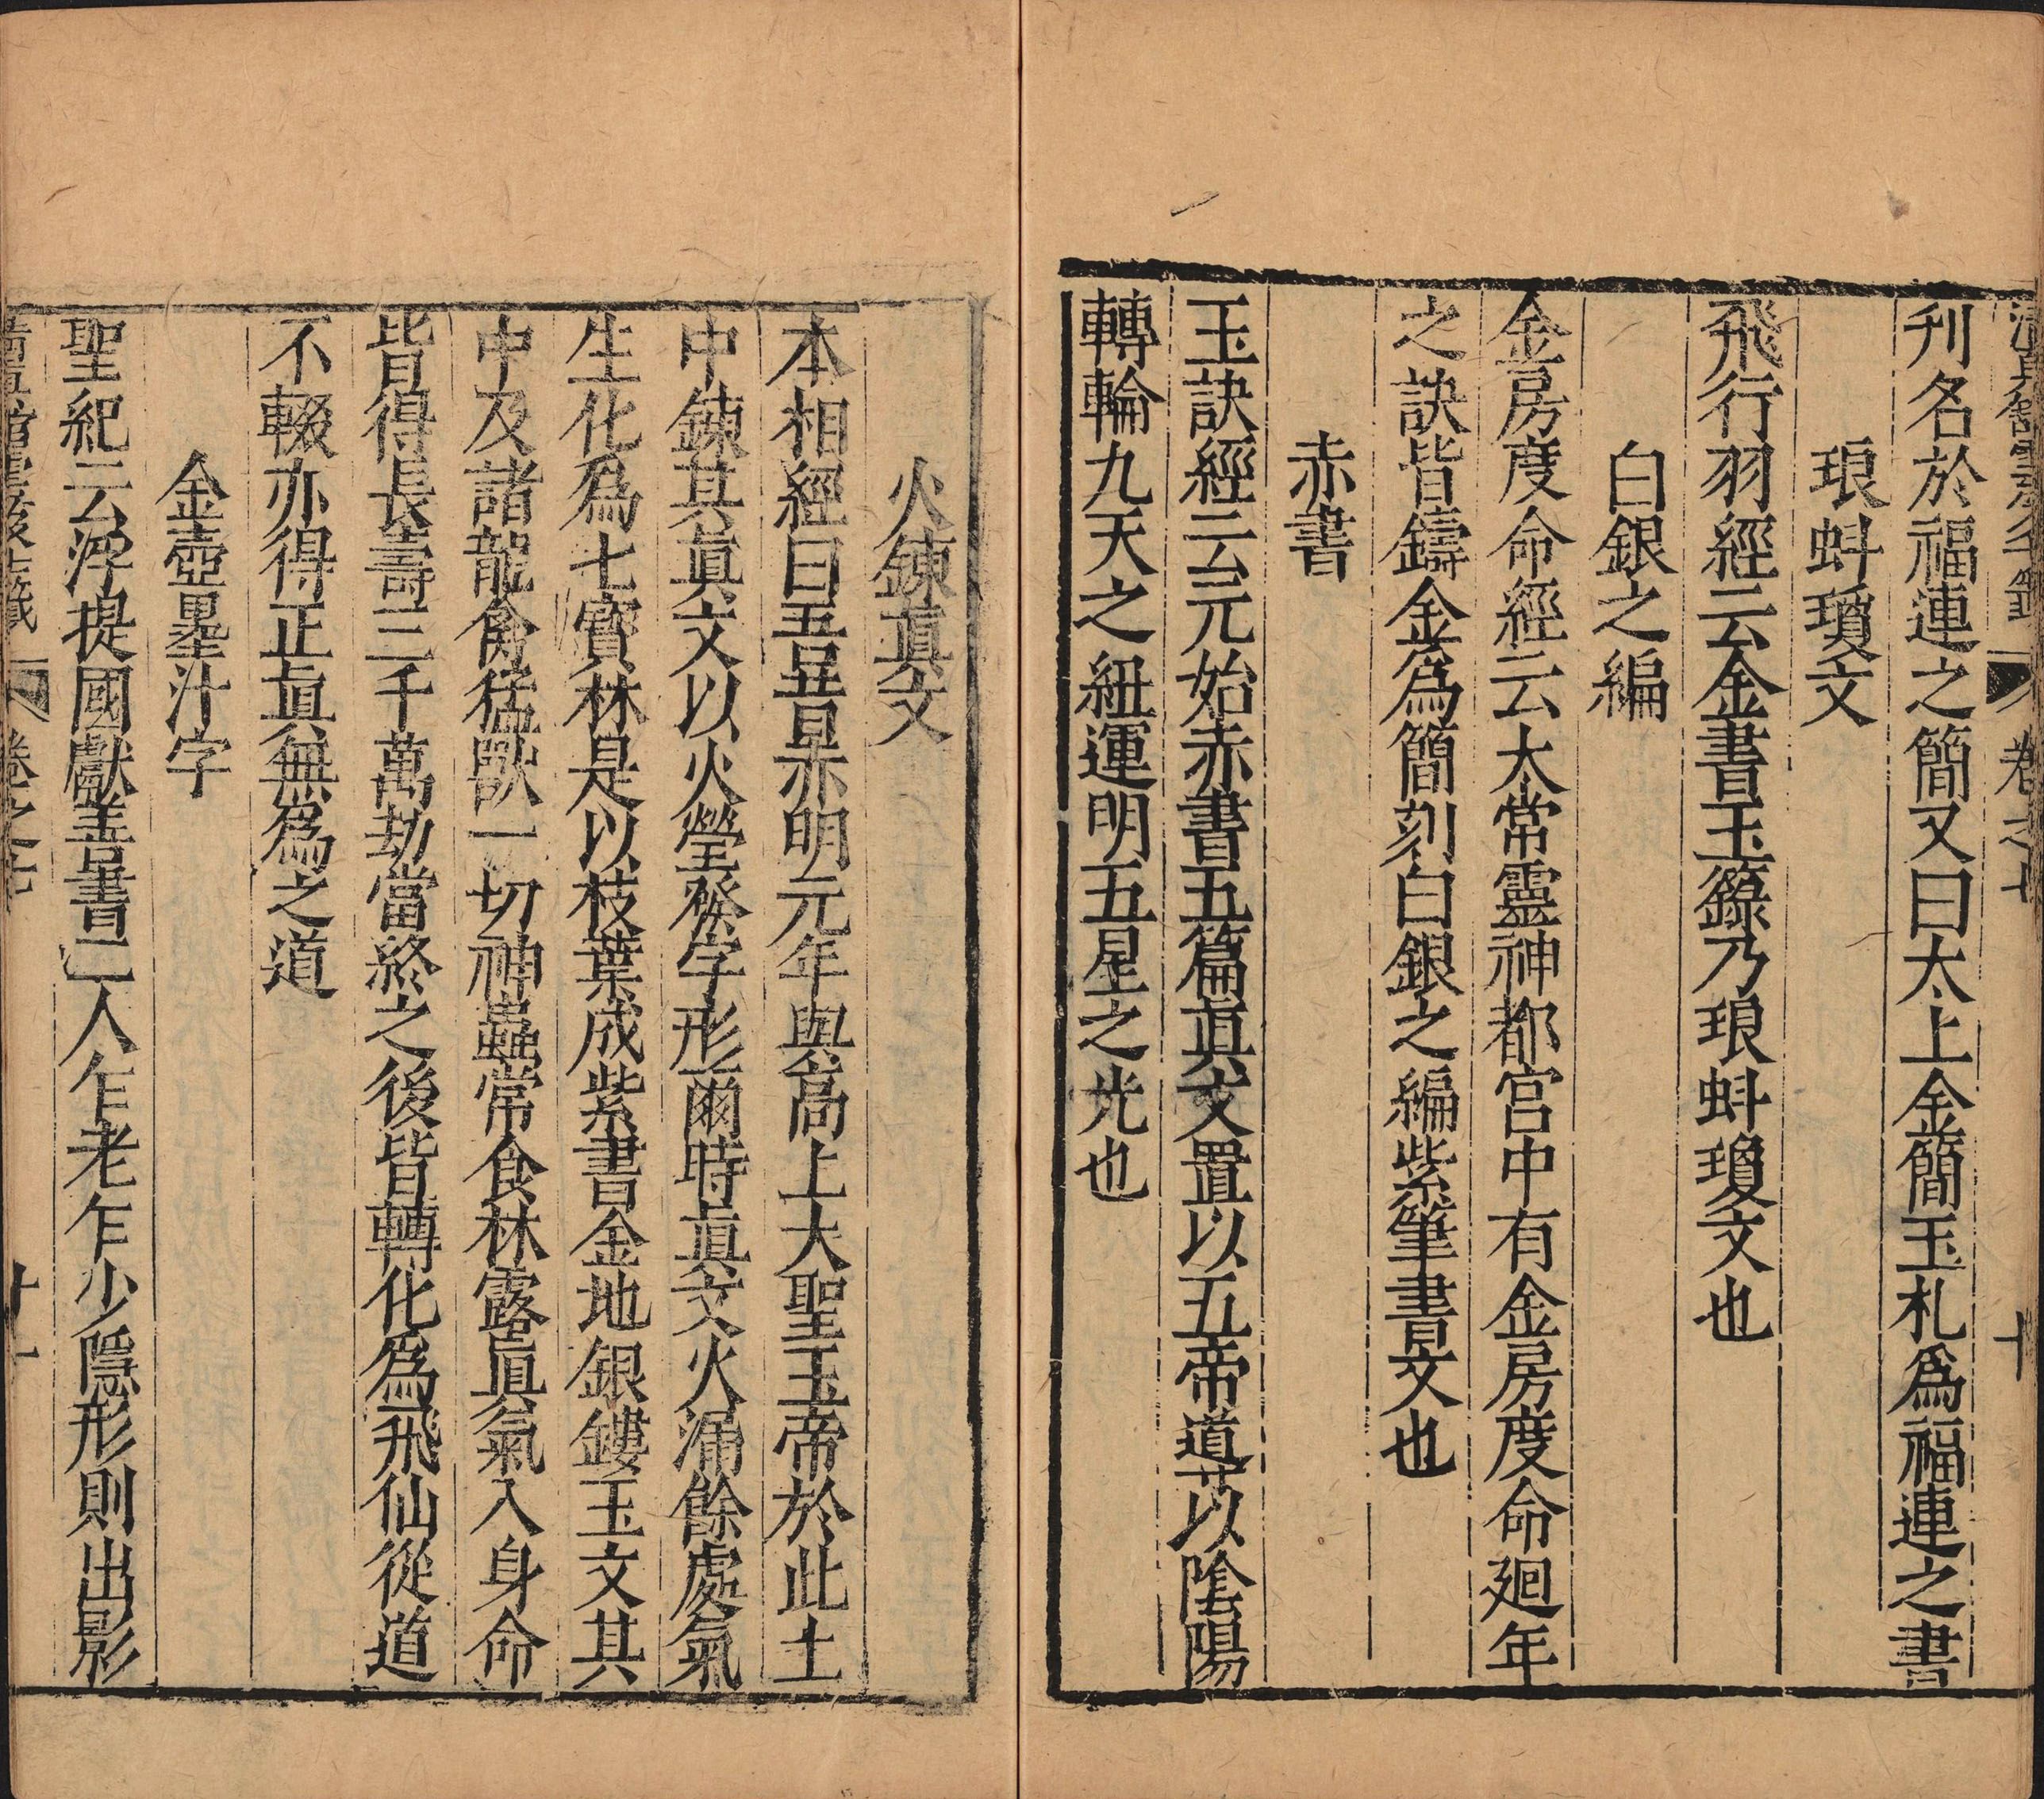 刋名於福連之簡又曰太上金簡玉札爲福連之書
琅蚪瓊文
飛行羽經云金書玉籙乃琅蚪瓊文也
白銀之編
金房度命經云太常靈神都宫中有金房度命廻年
之訣皆鑄金爲簡刻白銀之編紫筆書文也
赤書
玉訣經云元始赤書五篇眞文置以五帝道以陰陽
轉輪九天之紐運明五星之光也
卷之七
十
火鍊眞文
本相經曰吾昔赤明元年與高上大聖玉帝於此土
中鍊其眞文以火瑩發字形爾時眞文火漏餘處氣
生化爲七寳林是以枝葉成紫書金地銀鏤玉文其
中及諸龍禽猛獸一切神蟲常食林露眞氣入身命
皆得長壽三千萬劫當終之後皆轉化爲飛仙從道
不輟亦得正眞無爲之道
金壺墨汁字
聖紀云浮提國獻善書二人乍老乍少隱形則出影
卷之七
十一